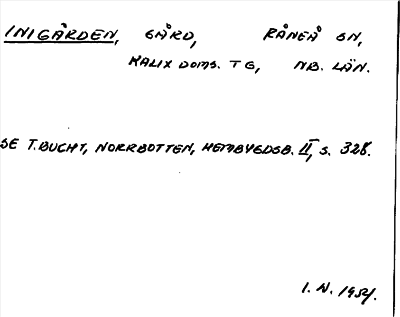 INIGÅRDEN, GÅRD, RÅNEÅ SN,
KALIX DOMS. TG, NB. LÄN.
SE T. BUCHT, NORRBOTTEN, HEMBYGDSB. II, S. 328.
I. N. 1954.